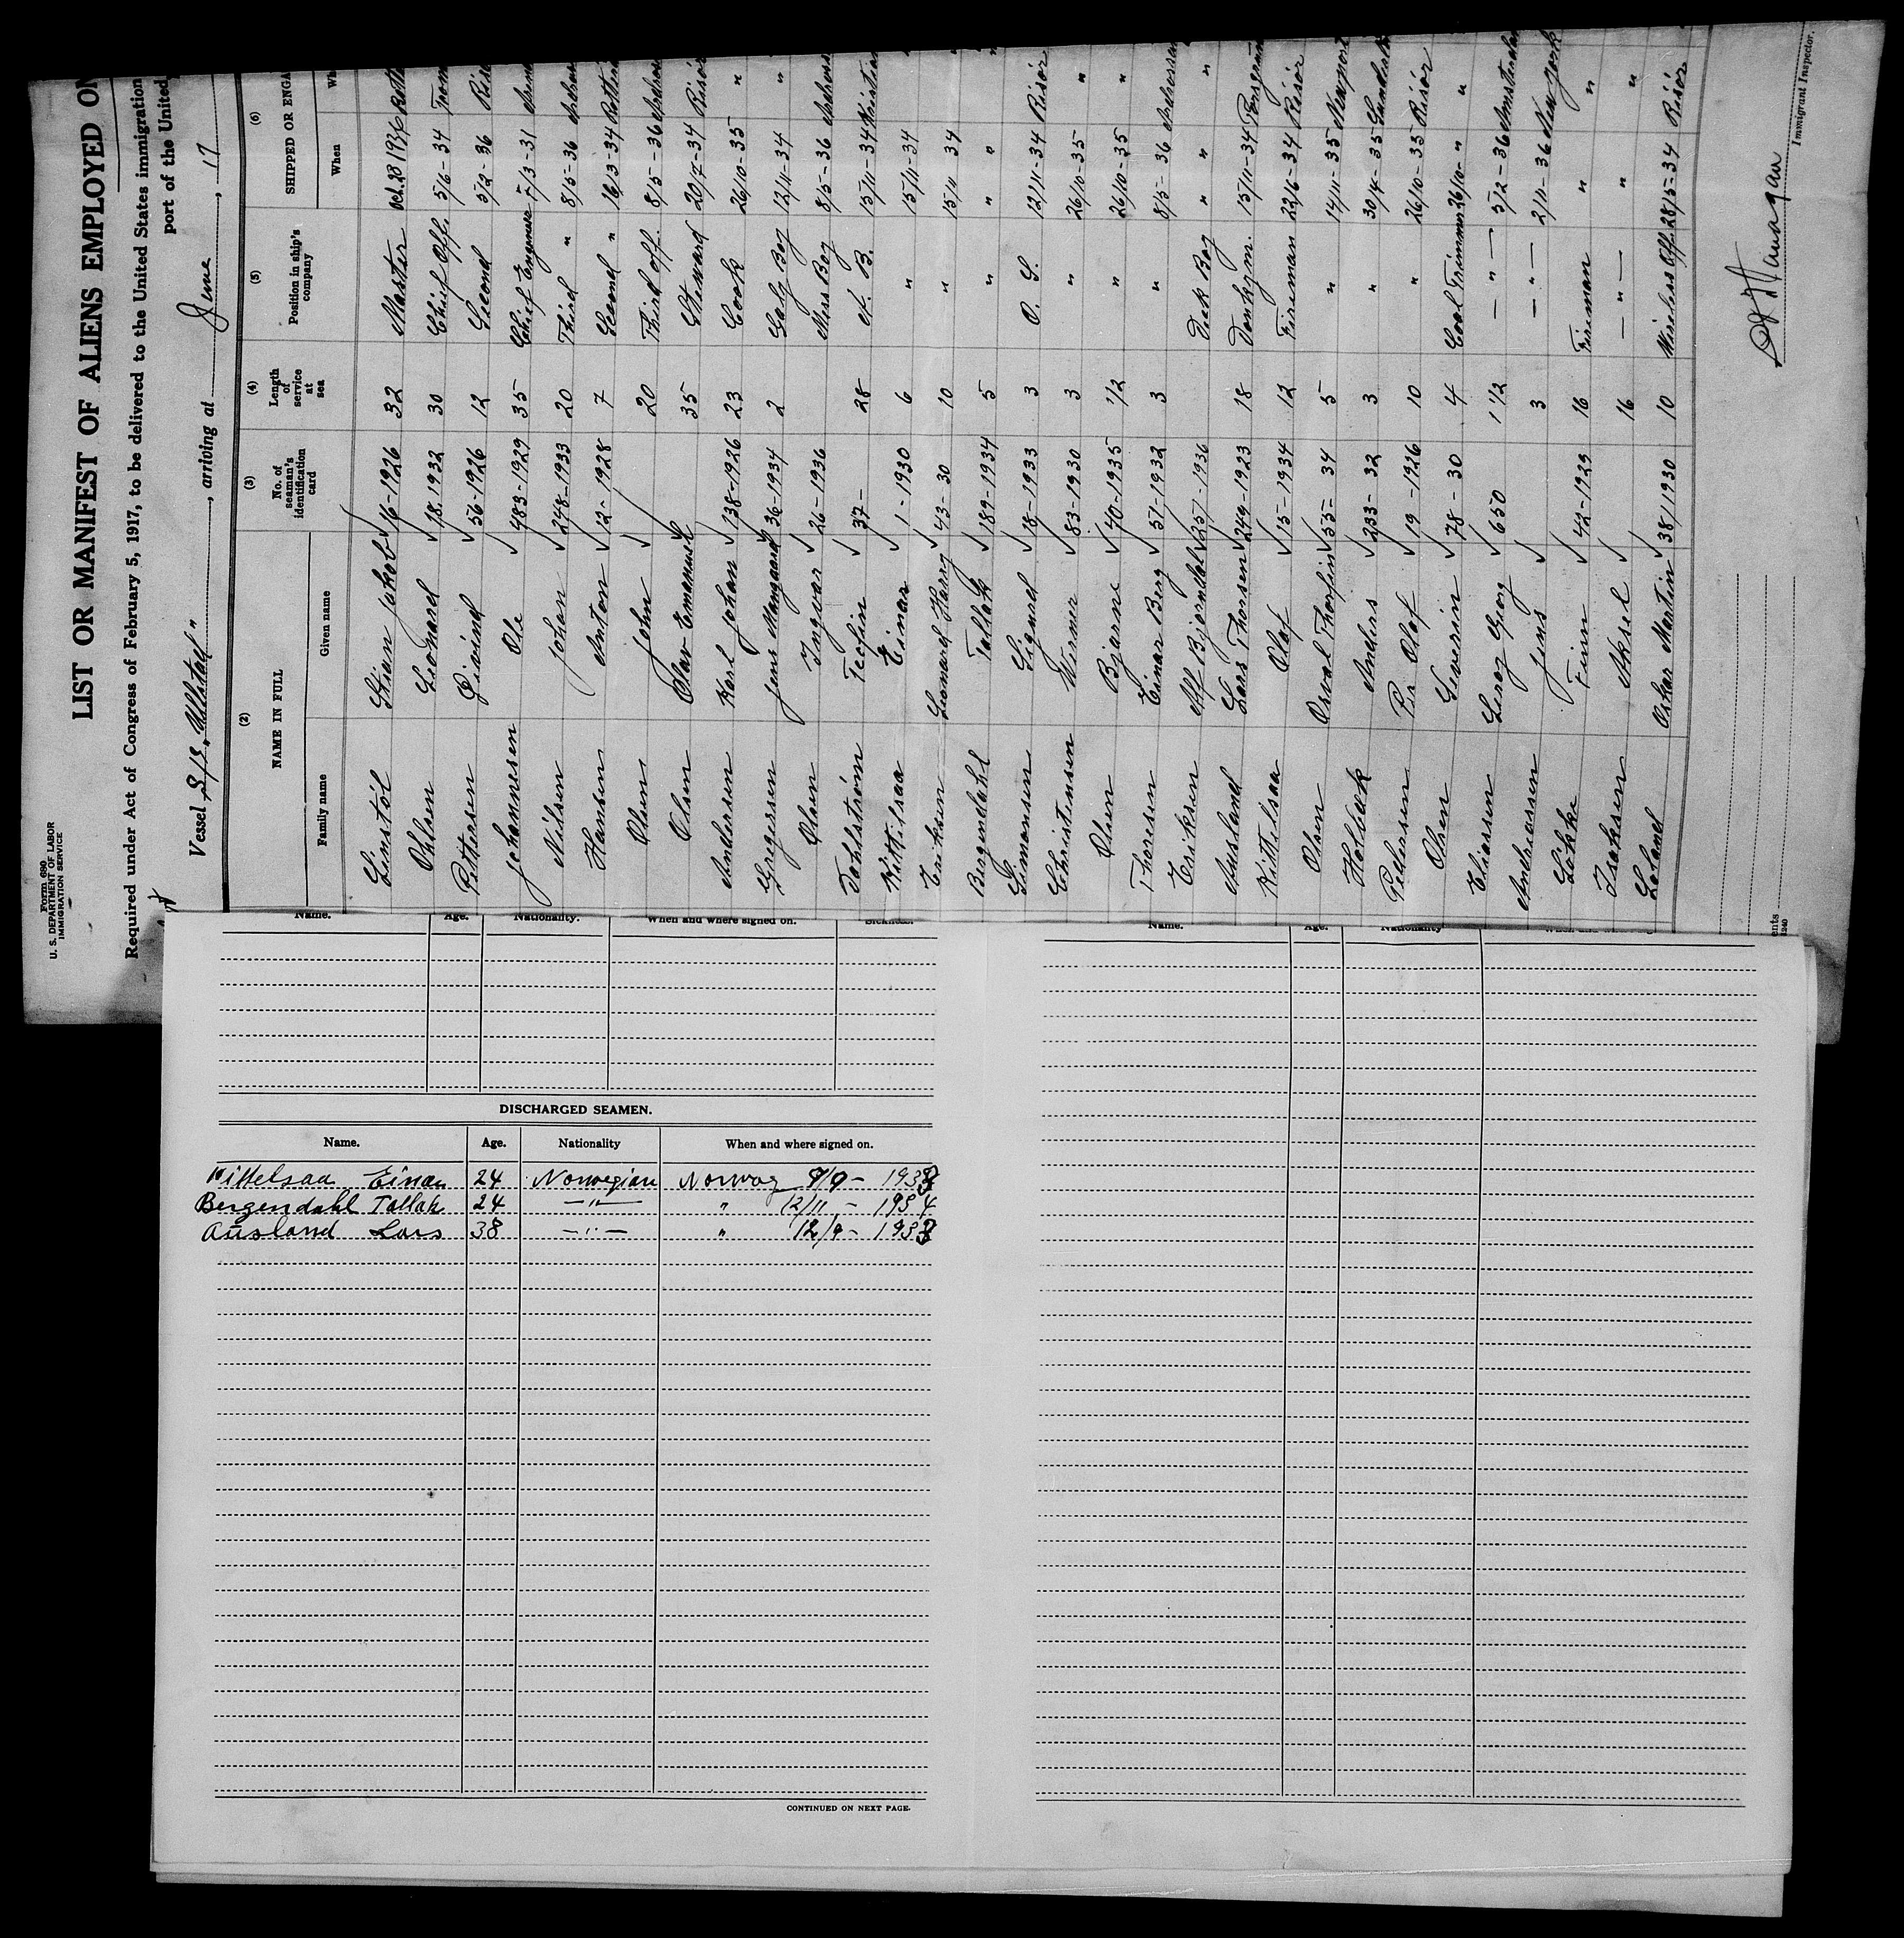 Form 690
U. S. DEPARTMENT OF LABOR
IMMIGRATION SERVICE
LIST OR MANIFEST OF ALIENS EMPLOYED ON
Required under Act of Congress of February 5, 1917, to be delivered to the United States immigration
port of the United
Vessel S/S "Ullstad", arriving at June, 17
(2) (3) (4) (5) (6)
NAME IN FULL No. of seaman's identification card Length of service at sea Position in ship's company SHIPPED OR ENGA
Family name Given name When Wh
Linstöl Stian Jakob 16-1926 32 Master Oct. 28 1936 Rotte
Ohlsen Leonard 18 1932 30 Chief Off. 5/6-34 Trom
Pettersen Eivind 56-1926 12 Second 5/2-36 Risö
Johannesen Ole 483-1929 35 Chief Engineer 7/3-31
Nilsen Johan 248-1933 20 Third " 8/5-36
Hansen Anton 12-1928 7 Second " 16/3-34 Rotter
Olsen John 20 Third Off. 8/5-36
Olsen Olav Emanuel 35 Steward 20/7-34 Risör
Andersen Karl Johan 138-1926 23 Cook 26/10-35 "
Gregersen Jens Mangaard 36-1934 2 Galy Boy 12/11-34 "
Olsen Ingvar 26-1936 Mess Boy 8/5-36
Dahlström 37- 28 A. B. 15/11-34 Kristian
Kittilsaa Einar 1-1930 6 " 15/11-34 "
Eriksen Leonard Harry 43-30 10 " 15/11 34 "
Bergendahl Tallak 189-1934 5 " " "
Simonsen Sigurd 18-1933 3 O. S. 12/11-34 Risör
Christensen Werner 83-1930 3 " 26/10-35 "
Olsen Bjarne 40-1935 1/2 " 26/10-35 "
Thoresen Einar Berg 57-1932 3 " 8/5-36
Eriksen Alf Bjorndal 257-1936 Deck Boy " "
Ausland Lars Thorsen 249-1923 18 Donkym. 15/11-34 Porsgrun
Kittelsaa Olaf 15-1934 12 Fireman 22/6-34 Risör
Olsen Osval Thorfin 55-34 5 " 14/11-35 Newport
Holbak Anders 233-32 3 " 30/4-35
Pedersen Per Olaf 19-1926 10 " 26/10-35 Risör
Olsen Severin 78-30 4 Coal Trimmer 26/10-" "
Eliassen Leroy Georg 650 1 1/2 — " — 5/2-36 Amsterdam
Andreassen Jens 3 — " — 2/11-36 New York
Lökke Finn 42-1929 16 Fireman " "
Isaksen Aksel 16 — " — " "
Loland Oskar Martin 38/1930 10 Wireless Off. 28/5-34 Risör
Immigrant Inspector.
ents
1240
Name. Age. Nationality. When and where signed on. Sickness.
Name. Age. Nationality
DISCHARGED SEAMEN.
Name. Age. Nationality When and where signed on.
Kittelsaa Einar 24 Norwegian Norway 9/9- 1933
Bergendahl Tallak 24 —"— " 12/11- 1934
Ausland Lars 38 —"— " 12/9- 1933
CONTINUED ON NEXT PAGE.